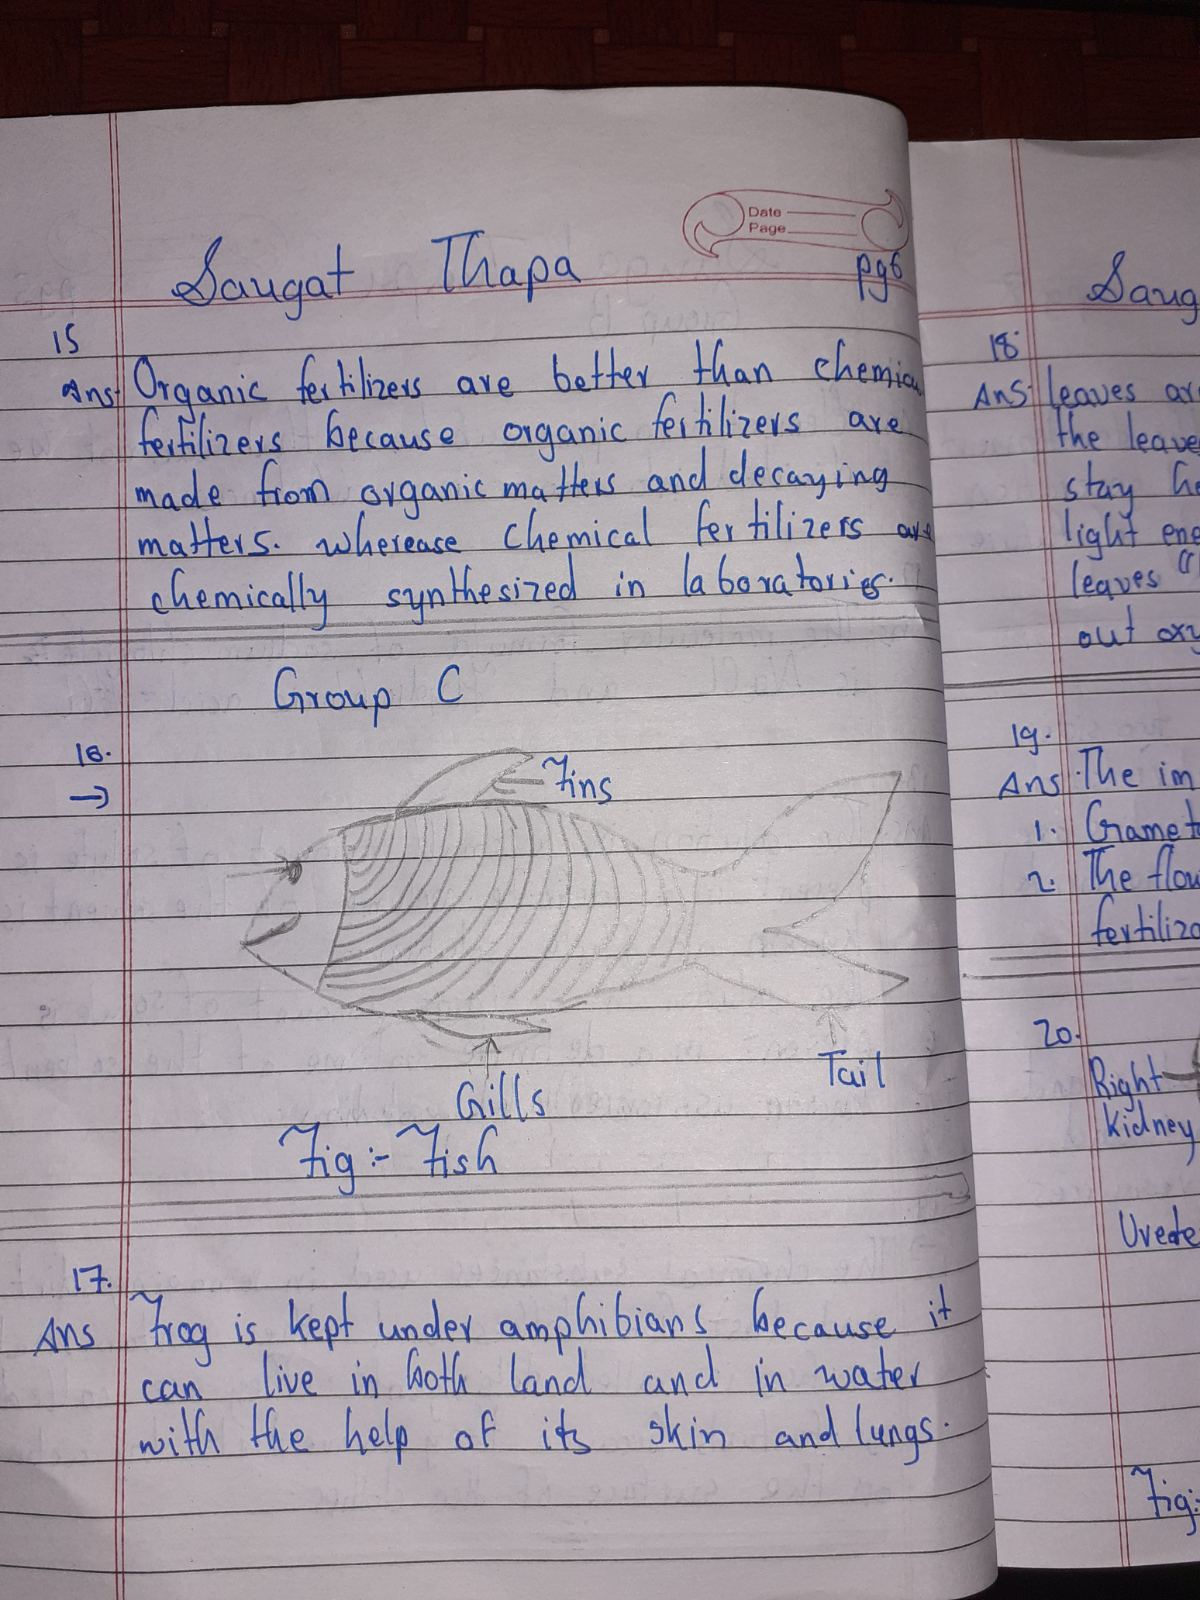 Date
Page
Saugat Thapa pg6
15
Ans: Organic fertilizers are better than chemic
fertilizers because organic fertilizers are
made from organic matters and decaying
matters. wherease chemical fertilizers are
chemically synthesized in laboratories.
Group C
16.
→
Fins
Gills
Tail
Fig :- Fish
17.
Ans Frog is kept under amphibians because it
can live in both land and in water
with the help of its skin and lungs.
Saug
18.
Ans: leaves ar
the leave
stay he
light ene
leaves
out oxy
19.
Ans: The im
1. Gamet
2. The flow
fertiliza
20.
Right
Kidney
Urete
Fig: